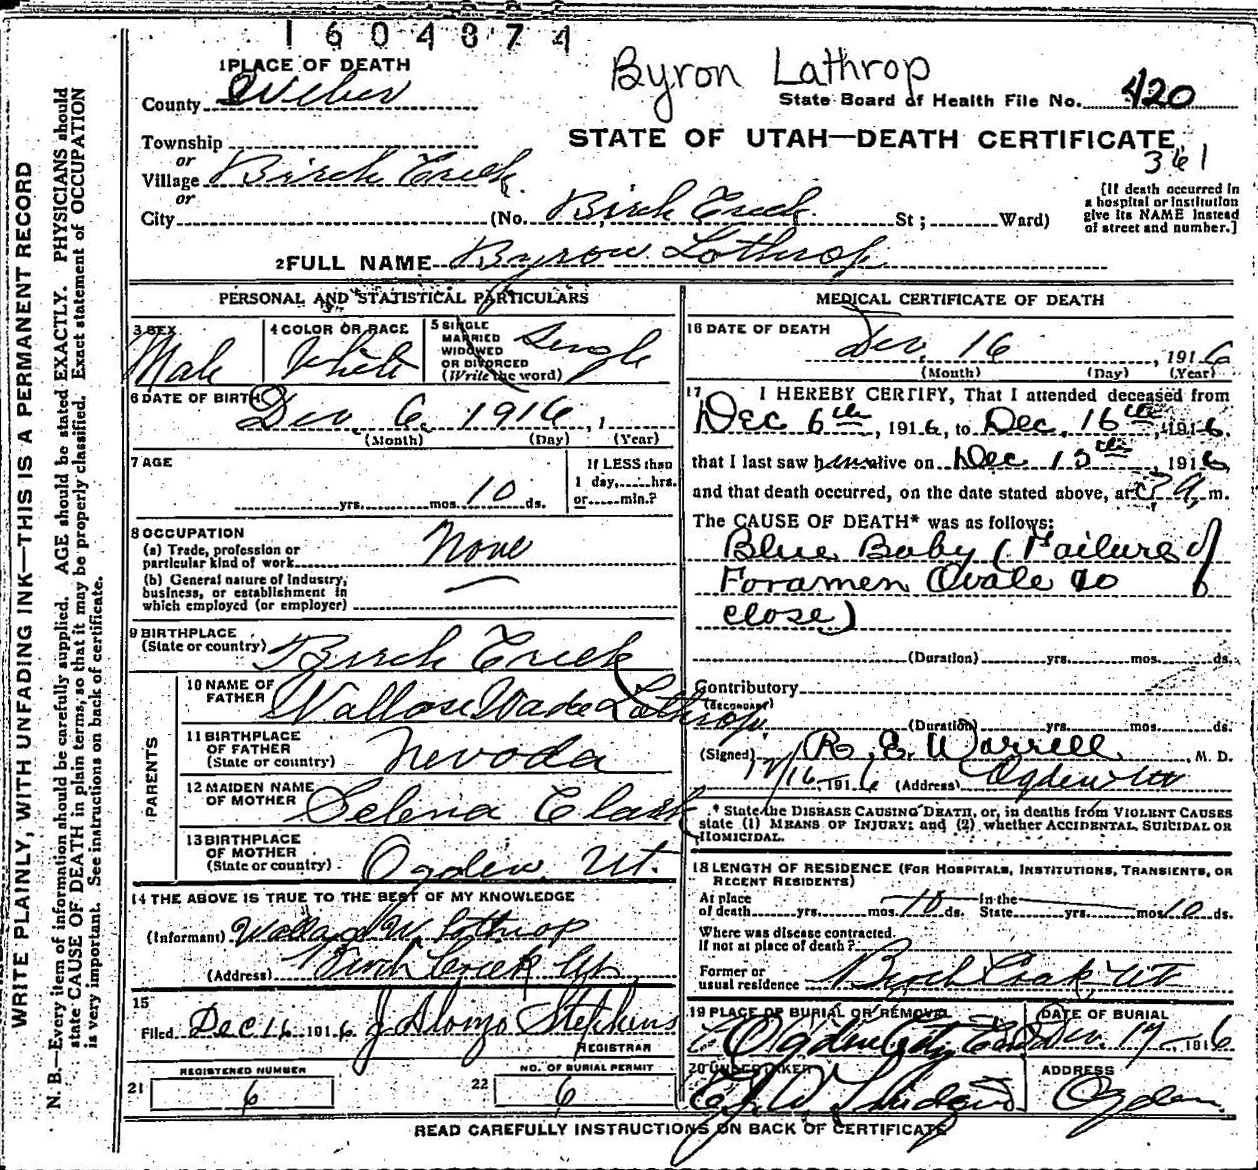 1604874
Byron Lathrop
1 PLACE OF DEATH
County Weber
State Board of Health File No. 420
Township
STATE OF UTAH—DEATH CERTIFICATE
361
or
Village Birch Creek
or
City (No. Birch Creek St; Ward)
[If death occurred in
a hospital or institution
give its NAME instead
of street and number.]
2 FULL NAME Byron Lothrop
PERSONAL AND STATISTICAL PARTICULARS
3 SEX
Male
4 COLOR OR RACE
White
5 SINGLE
MARRIED
WIDOWED
OR DIVORCED
(Write the word)
Single
6 DATE OF BIRTH
Dec. 6. 1916, 1
(Month) (Day) (Year)
7 AGE
yrs. mos. 10 ds.
If LESS than
1 day, hrs.
or min.?
8 OCCUPATION
(a) Trade, profession or
particular kind of work None
(b) General nature of industry,
business, or establishment in
which employed (or employer)
9 BIRTHPLACE
(State or country) Birch Creek
PARENTS
10 NAME OF
FATHER Wade Lothrop
11 BIRTHPLACE
OF FATHER
(State or country) Nevoda
12 MAIDEN NAME
OF MOTHER Selena Clark
13 BIRTHPLACE
OF MOTHER
(State or country) Ogden Ut.
14 THE ABOVE IS TRUE TO THE BEST OF MY KNOWLEDGE
(Informant) W. Lothrop
(Address) Birch Creek
15
Filed Dec 16 1916 J Alonzo Stephens
REGISTRAR
REGISTERED NUMBER
21 6
NO. OF BURIAL PERMIT
22 6
MEDICAL CERTIFICATE OF DEATH
16 DATE OF DEATH
Dec. 16, 1916
(Month) (Day) (Year)
17 I HEREBY CERTIFY, That I attended deceased from
Dec 6th, 1916, to Dec. 16th, 1916.
that I last saw him alive on Dec 15th, 1916
and that death occurred, on the date stated above, at 3 a. m.
The CAUSE OF DEATH* was as follows:
Blue Baby (Failure of
Foramen Ovale to
close)
(Duration) yrs. mos. ds.
Contributory
(SECONDARY)
(Duration) yrs. mos. ds.
(Signed) R. E. Worrell, M. D.
12/16, 1916 (Address) Ogden Ut
* State the DISEASE CAUSING DEATH, or, in deaths from VIOLENT CAUSES
state (1) MEANS OF INJURY; and (2) whether ACCIDENTAL, SUICIDAL OR
HOMICIDAL.
18 LENGTH OF RESIDENCE (FOR HOSPITALS, INSTITUTIONS, TRANSIENTS, OR
RECENT RESIDENTS)
At place
of death yrs. mos. 10 ds. In the
State yrs. mos. 10 ds.
Where was disease contracted.
If not at place of death?
Former or
usual residence Birch Creek, Ut
19 PLACE OF BURIAL OR REMOVAL
Ogden City Cem
DATE OF BURIAL
Dec. 17 1916
20 UNDERTAKER
ADDRESS
Ogden
READ CAREFULLY INSTRUCTIONS ON BACK OF CERTIFICATE
WRITE PLAINLY, WITH UNFADING INK—THIS IS A PERMANENT RECORD
N. B.—Every item of information should be carefully supplied. AGE should be stated EXACTLY. PHYSICIANS should
state CAUSE OF DEATH in plain terms, so that it may be properly classified. Exact statement of OCCUPATION
is very important. See instructions on back of certificate.